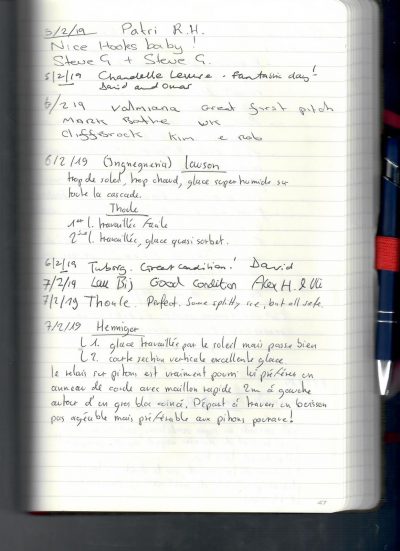 5/2/19 Patri R.H.
Nice Hooks baby!
Steve G + Steve G.
5/2/19 Chandelle Levure - Fantastic day!
David and Omar
6/2 19 Valmiana Great first pitch
Mark
Kim e Rob
6/2/19 (Ingnegneria) Lauson
trop de soleil, trop chaud, glace super humide sur
toute la cascade.
Thoule
1ère l. travaillée facile
2ème l. travaillée, glace quasi sorbet.
6/2/19 Tuborg. Great condition! David
7/2/19 Lau Bij Good Condition Alex H. & Uli
7/2/19 Thoule. Perfect. Some splitty ice, but all safe.
7/2/19 Hermiger
L 1. glace travaillée par le soleil mais passe bien
L 2. courte section verticale excellente glace.
le relais sur pitons est vraiment pourri lui préférer un
anneau de corde avec maillon rapide 2m à gauche
autour d'un gros bloc coincé. Départ à travers un buisson
pas agréable mais préférable aux pitons pourave!